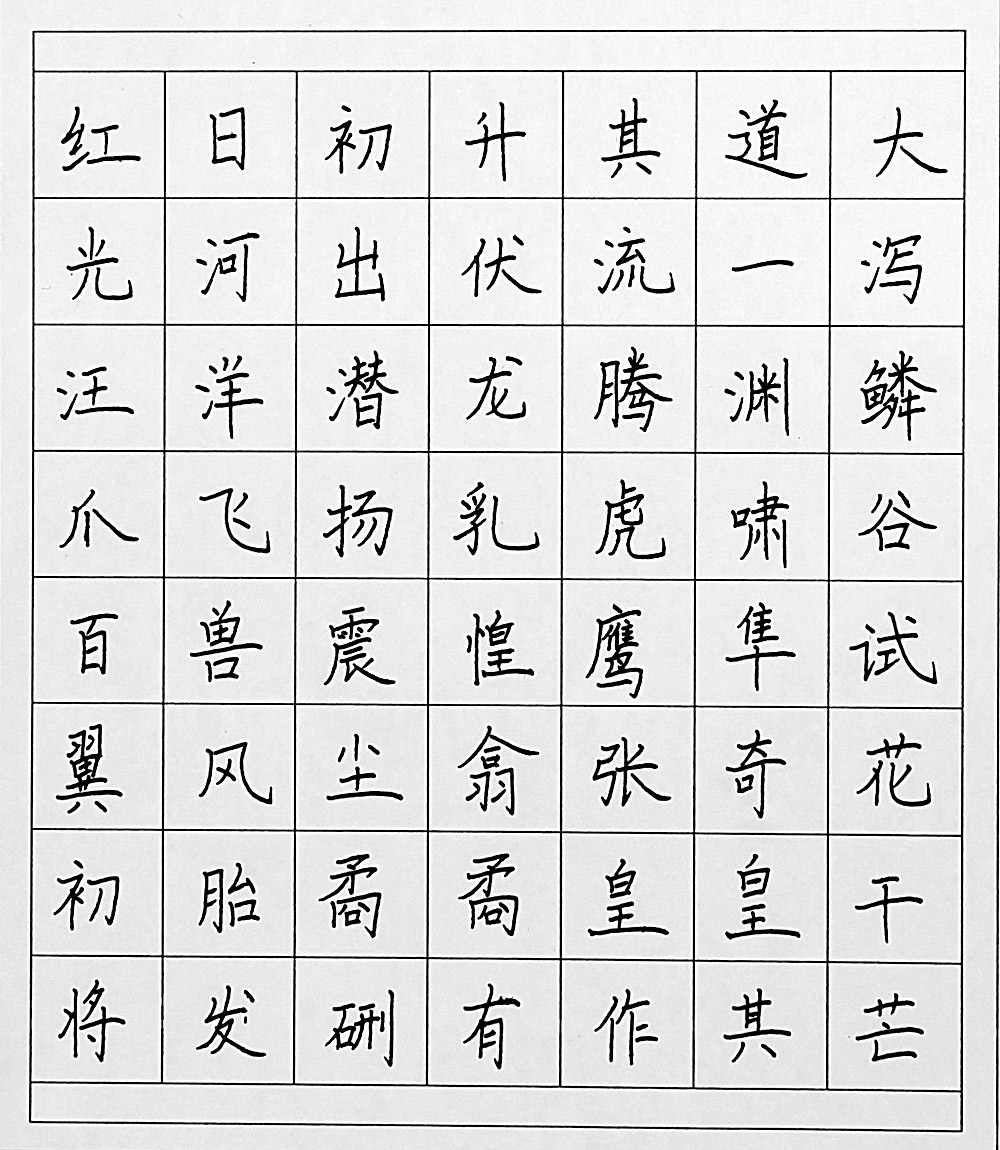 红日初升其道大
光河出伏流一泻
汪洋潜龙腾渊鳞
爪飞扬乳虎啸谷
百兽震惶鹰隼试
翼风尘翕张奇花
初胎矞矞皇皇干
将发硎有作其芒